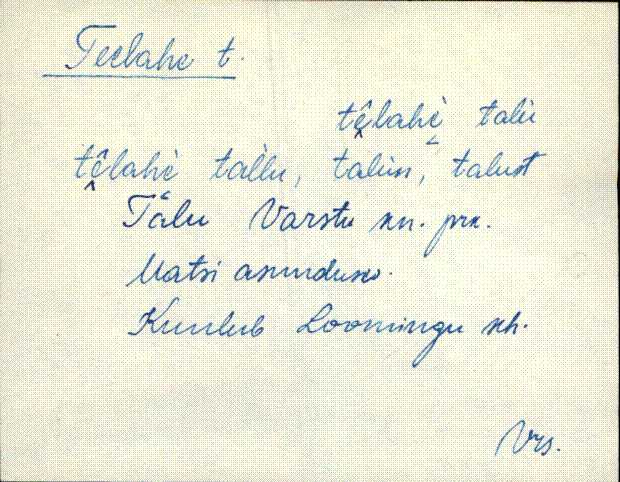 Teelahe t.
tê̬lahè talu
tê̬lahè tàllu, talun, talust
Talu Varstu kn. prk.
Matsi asunduses.
Kuulub Loomingu kh.
Vrs.